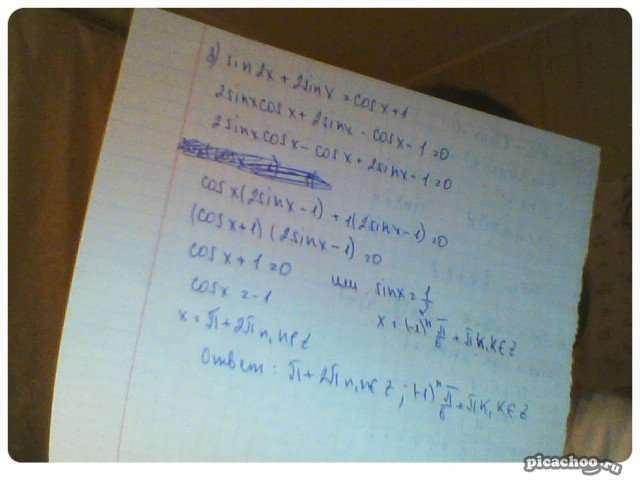 3) sin2x + 2sinx = cosx+1
2sinxcosx + 2sinx - cosx - 1 = 0
2sinxcosx - cosx + 2sinx - 1 = 0
cosx(2sinx - 1) + 1(2sinx - 1) = 0
(cosx+1)(2sinx-1) = 0
cosx+1=0 или sinx = 1/2
cosx = -1 x = (-1)^n π/6 + πk, k∈z
x = π + 2πn, n∈z
Ответ: π + 2πn, n∈z; (-1)^n π/6 + πk, k∈z
picachoo.ru